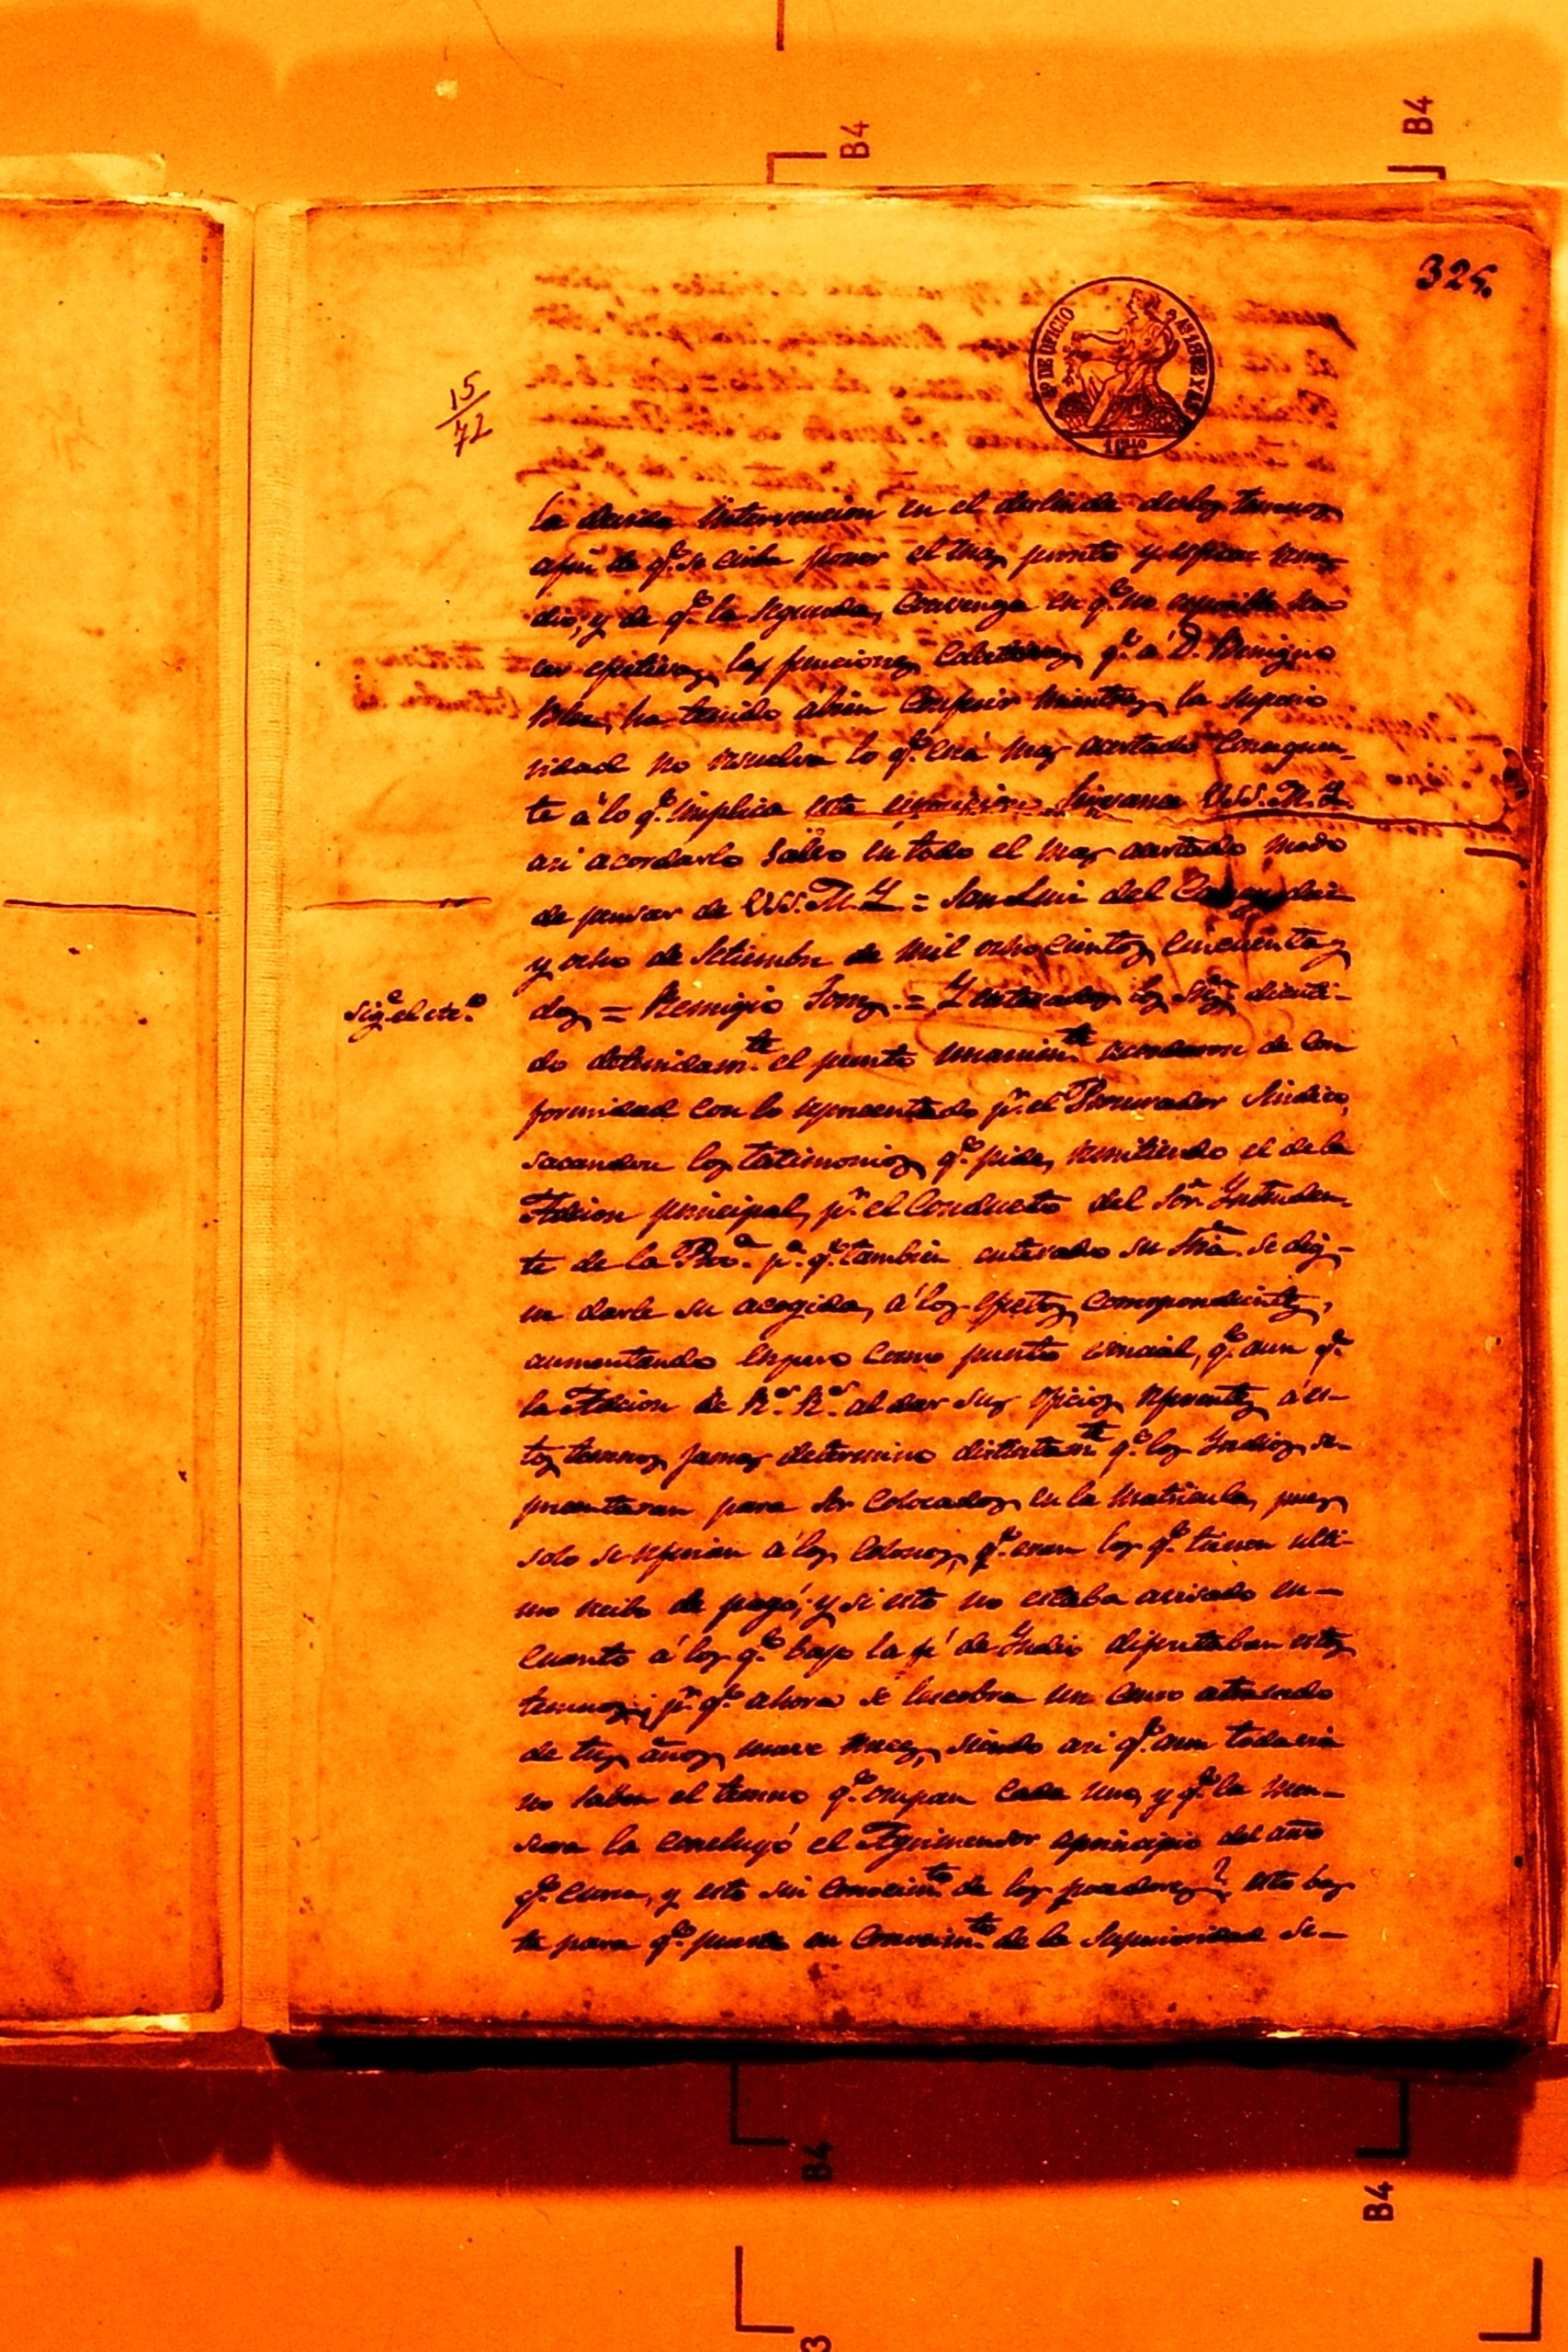 325.
Sº DE OFICIO AS 1852 Y 53
15
72
la devida intervencion en el deslinde de los terrenos
afin de q.e se sirba poner el mas pronto y eficaz reme-
dio, y de q.e la segunda, convenga en q.e no es posible ha-
cer efectivas las funciones Colectoras q.e á D. Benigno
ha tenido abien conferir mientras la superio
ridad no resuelva lo q.e crea mas acertado consiguien-
te á lo q.e implica esta esposicion. Sirvanse USS. M. Y.
asi acordarlo salvo en todo el mas acertado modo
de pensar de USS. M. Y. = San Luis del Caney diez
y ocho de Setiembre de mil ocho cientos cincuenta y
dos = Remigio Torres. = Y enterados los S.res discuti-
do detenidam.te el punto unanim.te acordaron de con
formidad con lo representado p.r el Procurador Sindico,
sacandose los testimonios q.e pide, remitiendo el de la
Adcion principal, p.r el conducto del Sor. Yntenden-
te de la Prov.a p.a q.e tambien enterado su Sria. se dig-
ne darle su acogida, á los efectos correspondientes,
aumentando empero como punto esencial, q.e aun q.e
la Adcion de R.s R.s al dar sus oficios referentes á es-
tos terrenos jamas determino distintam.te q.e los Yndios se
presentaran para ser colocados en la matricula, pues
solo se referian á los colonos, q.e eran los q.e tienen ulti-
mo recibo de pago; y si esto no estaba avisado en-
cuanto á los q.e bajo la fé de Yndio disfrutaban estos
terrenos; p.r q.e ahora se les cobra un censo atrasado
de tres años, nueve meses, siendo asi q.e aun todavia
no saben el terreno q.e ocupan cada uno, y q.e la men-
sura la concluyó el Agrimensor aprincipio del año
q.e cursa, y esto sin conocim.to de los poseedores? esto bas
ta para q.e puesto en conocim.to de la Superioridad se-
Sig.e el ete.o